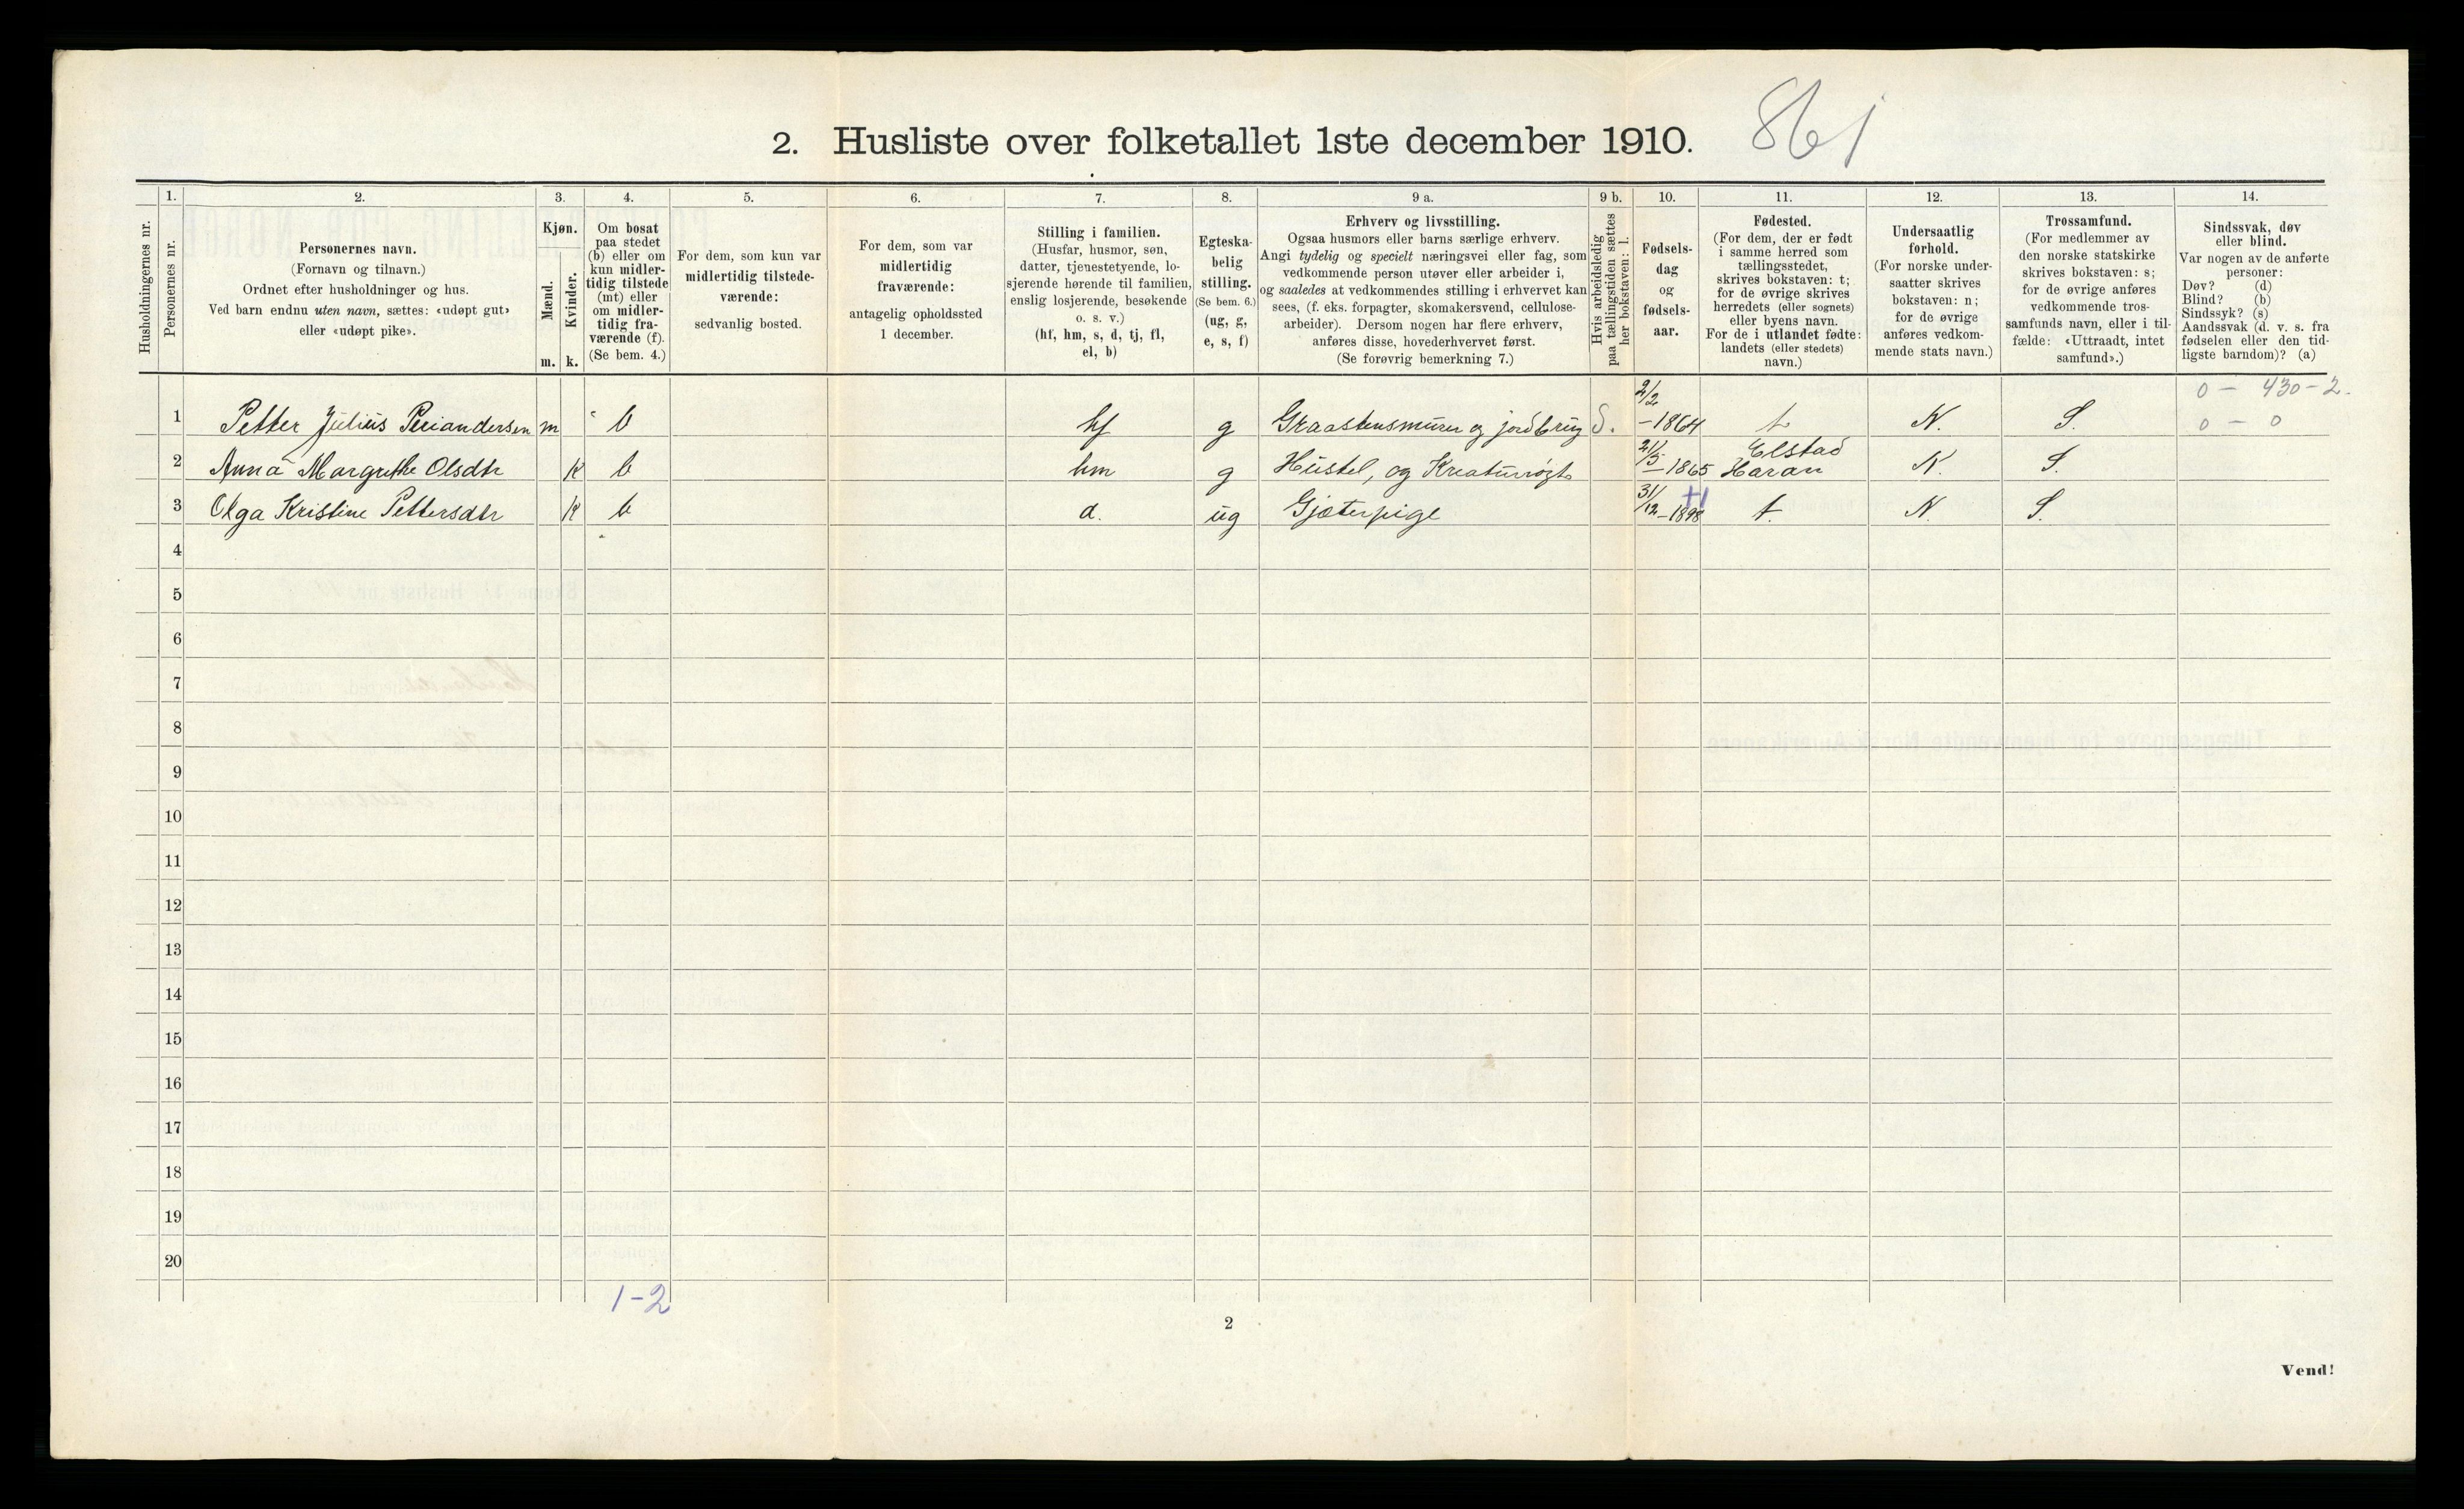 2. Husliste over folketallet 1ste december 1910.
861
Husholdningernes nr.
1.
Personernes nr.
2.
Personernes navn.
(Fornavn og tilnavn.)
Ordnet efter husholdninger og hus.
Ved barn endnu uten navn, sættes: «udøpt gut»
eller «udøpt pike».
3.
Kjøn.
Mænd.
Kvinder.
m. k.
4.
Om bosat
paa stedet
(b) eller om
kun midler-
tidig tilstede
(mt) eller
om midler-
tidig fra-
værende (f).
(Se bem. 4.)
5.
For dem, som kun var
midlertidig tilstede-
værende:
sedvanlig bosted.
6.
For dem, som var
midlertidig
fraværende:
antagelig opholdssted
1 december.
7.
Stilling i familien.
(Husfar, husmor, søn,
datter, tjenestetyende, lo-
sjerende hørende til familien,
enslig losjerende, besøkende
o. s. v.)
(hf, hm, s, d, tj, fl,
el, b)
8.
Egteska-
belig
stilling.
(Se bem. 6.)
(ug, g,
e, s, f)
9 a.
Erhverv og livsstilling.
Ogsaa husmors eller barns særlige erhverv.
Angi tydelig og specielt næringsvei eller fag, som
vedkommende person utøver eller arbeider i,
og saaledes at vedkommendes stilling i erhvervet kan
sees, (f. eks. forpagter, skomakersvend, cellulose-
arbeider). Dersom nogen har flere erhverv,
anføres disse, hovederhvervet først.
(Se forøvrig bemerkning 7.)
9 b.
Hvis arbeidsledig
paa tællingstiden sættes
her bokstaven: l.
10.
Fødsels-
dag
og
fødsels-
aar.
11.
Fødested.
(For dem, der er født
i samme herred som
tællingsstedet,
skrives bokstaven: t;
for de øvrige skrives
herredets (eller sognets)
eller byens navn.
For de i utlandet fødte:
landets (eller stedets)
navn.)
12.
Undersaatlig
forhold.
(For norske under-
saatter skrives
bokstaven: n;
for de øvrige
anføres vedkom-
mende stats navn.)
13.
Trossamfund.
(For medlemmer av
den norske statskirke
skrives bokstaven: s;
for de øvrige anføres
vedkommende tros-
samfunds navn, eller i til-
fælde: «Uttraadt, intet
samfund».)
14.
Sindssvak, døv
eller blind.
Var nogen av de anførte
personer:
Døv? (d)
Blind? (b)
Sindssyk? (s)
Aandssvak (d. v. s. fra
fødselen eller den tid-
ligste barndom)? (a)
0 - 430-2.
1 Petter Julius Periandersen m b hf g Graastensmurer og jordbrug S. 2/2 -1864 t N. S. 0 - 0
2 Anna Margrethe Olsdtr k b hm g Hustel, og Kreaturrøgt 21/5 -1865 Elstad Haran N. S.
3 Olga Kristine Pettersdtr k b d. ug Gjæterpige 31/12 -1898 +1 t. N. S.
4
5
6
7
8
9
10
11
12
13
14
15
16
17
18
19
20
1-2
2
Vend!